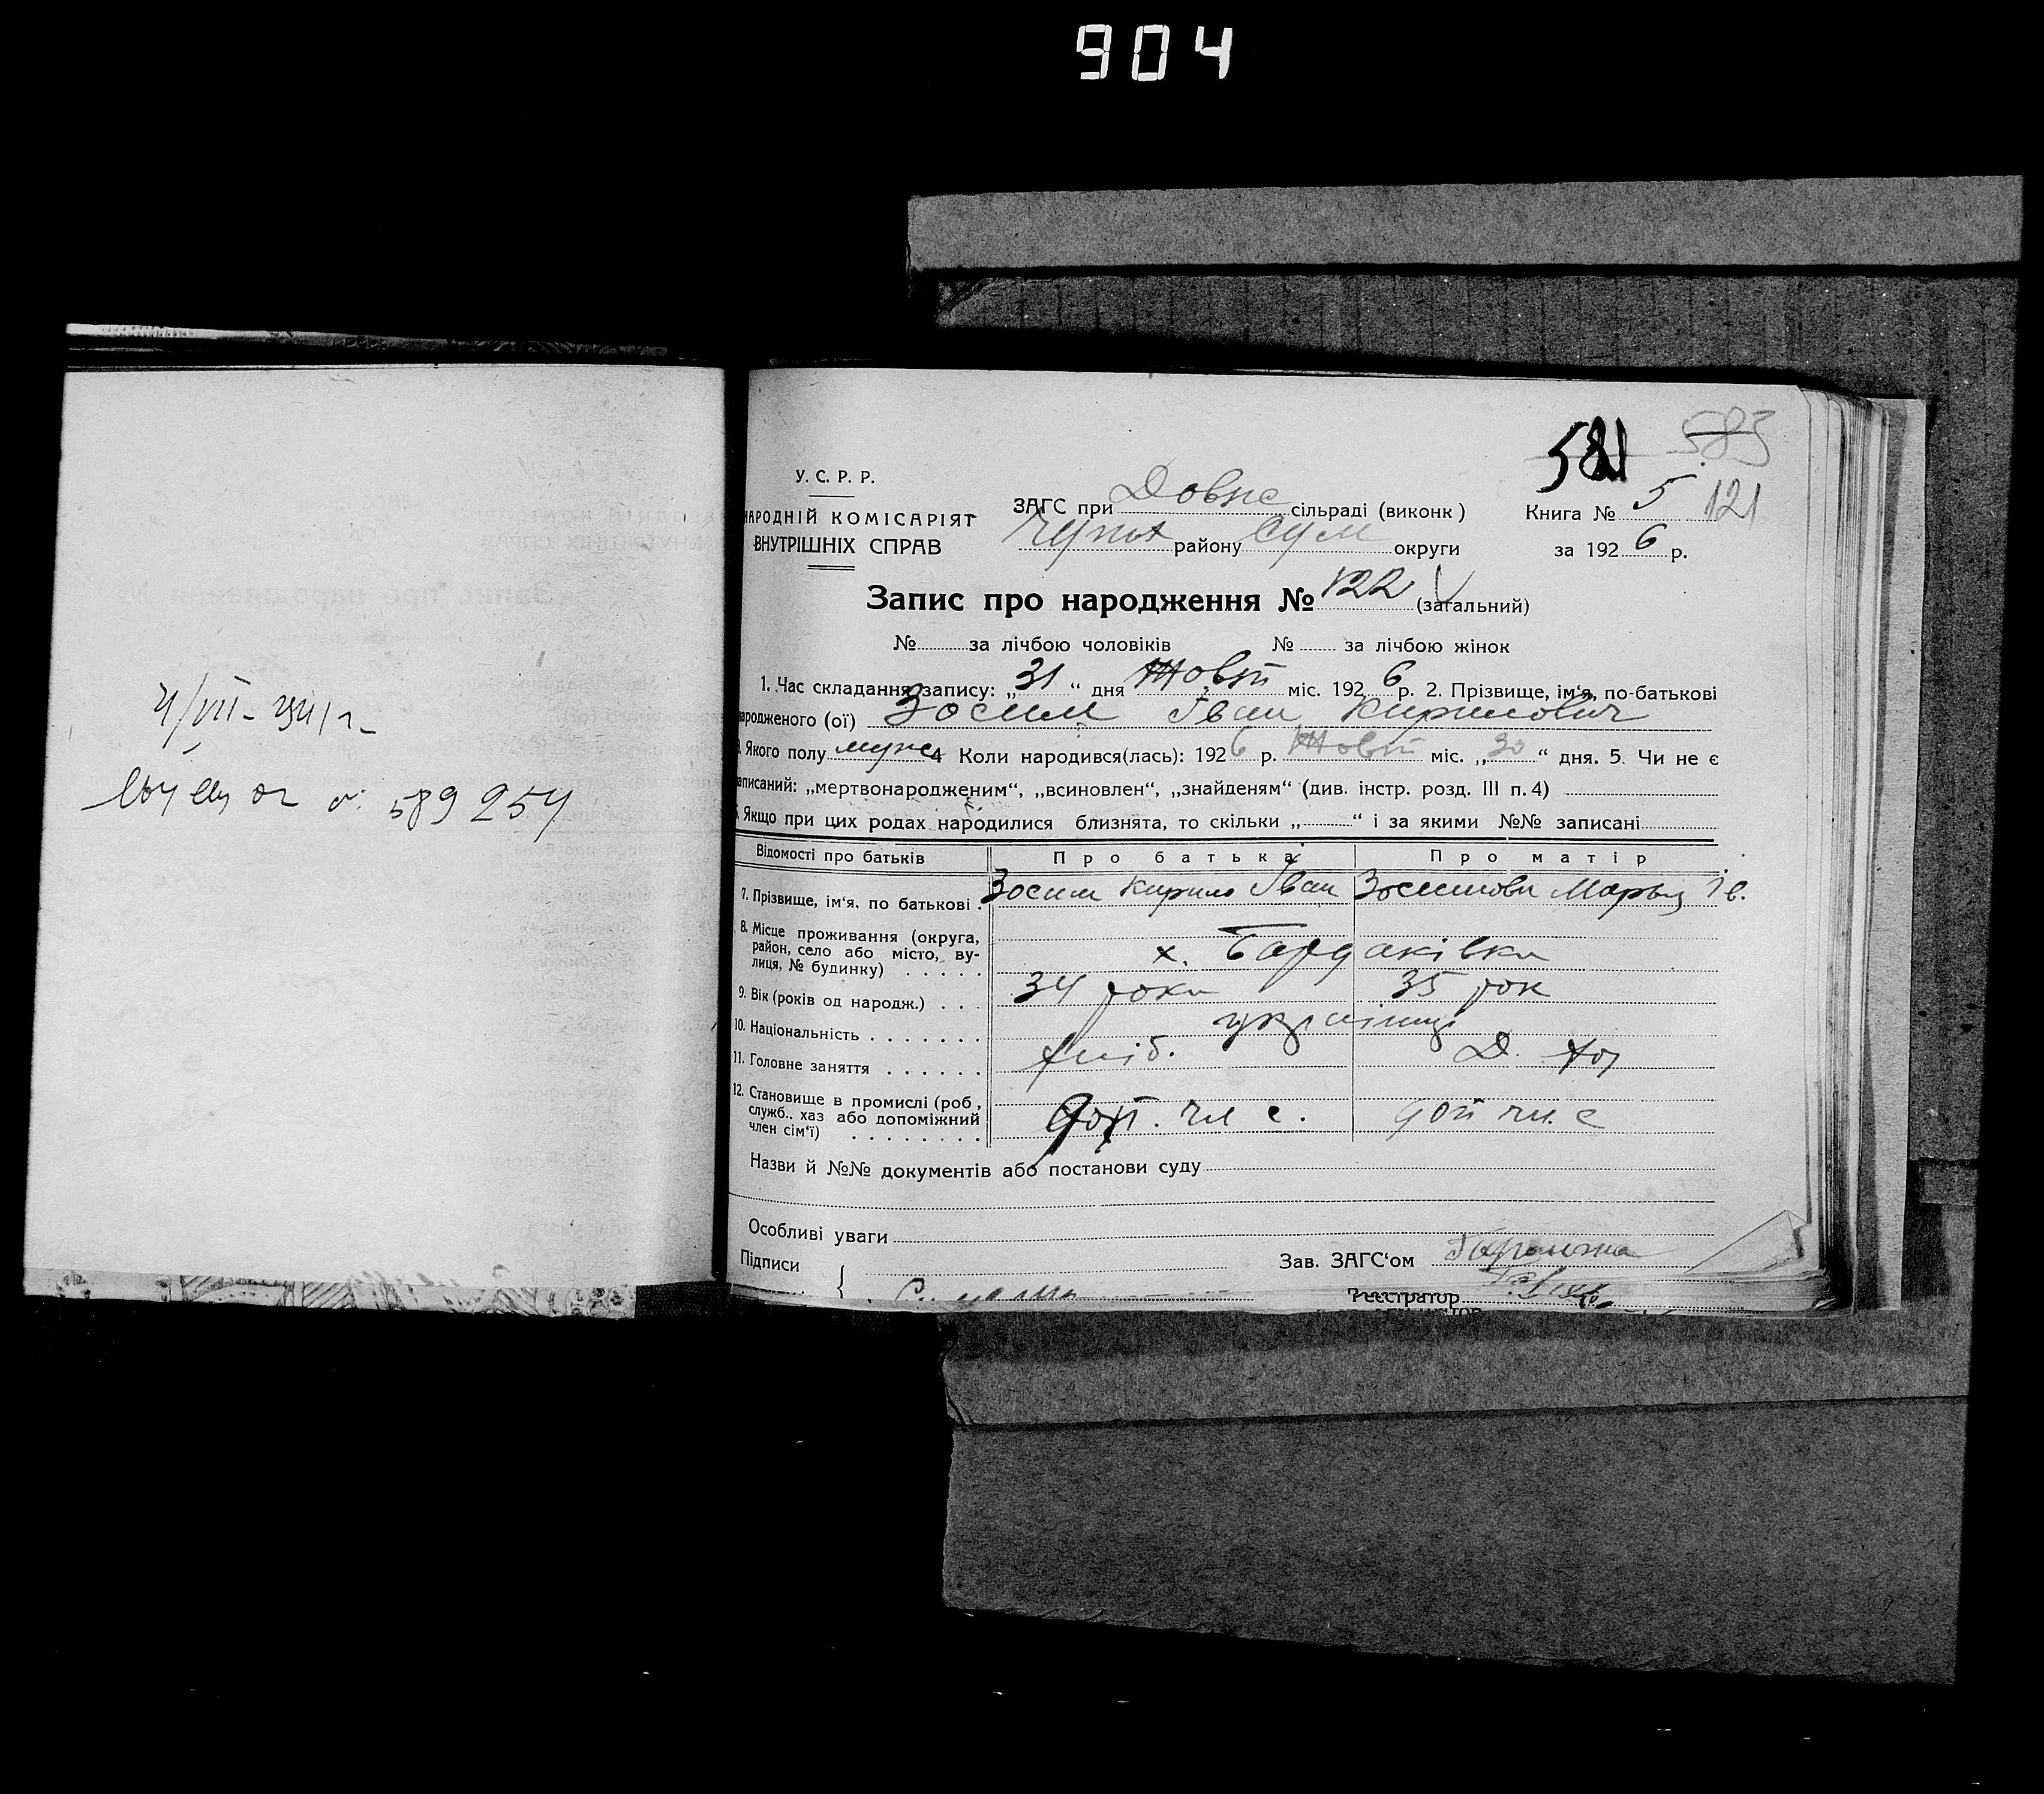 904
4/VII-
589254
581 583
У. С. Р. Р.
НАРОДНІЙ КОМІСАРІЯТ
ВНУТРІШНІХ СПРАВ
ЗАГС при Довж сільраді (виконк)
Чупах району Сум округи
Книга № 5 121
за 1926 р.
Запис про народження № 122 (загальний)
№ за лічбою чоловіків № за лічбою жінок
1. Час складання запису: „31“ дня Жовт міс. 1926 р. 2. Прізвище, ім‘я, по-батькові
народженого (ої) Зосим Іван Кирилович
3. Якого полу муж 4 Коли народився(лась): 1926 р. Жовт міс. „30“ дня. 5. Чи не є
записаний: „мертвонародженим“, „всиновлен“, „знайденям“ (див. інстр. розд. III п. 4)
6. Якщо при цих родах народилися близнята, то скільки „ “ і за якими №№ записані
Відомості про батьків Про батька Про матір
7. Прізвище, ім‘я, по батькові . Зосим Кирило Іван Зосимова Марья Ів.
8. Місце проживання (округа,
район, село або місто, ву-
лиця, № будинку) . . . . . х. Бардаківка
9. Вік (років од народж.) . . . 34 роки 35 рок
10. Національність . . . . . . . українці
11. Головне заняття . . . . . . хліб. Д. хоз
12. Становище в промислі (роб,
служб.. хаз або допоміжний
член сім‘ї) . . . . . . . . доп. чл с. доп чл. с
Назви й №№ документів або постанови суду
Особливі уваги
Підписи
Зав. ЗАГС‘ом
Реєстратор